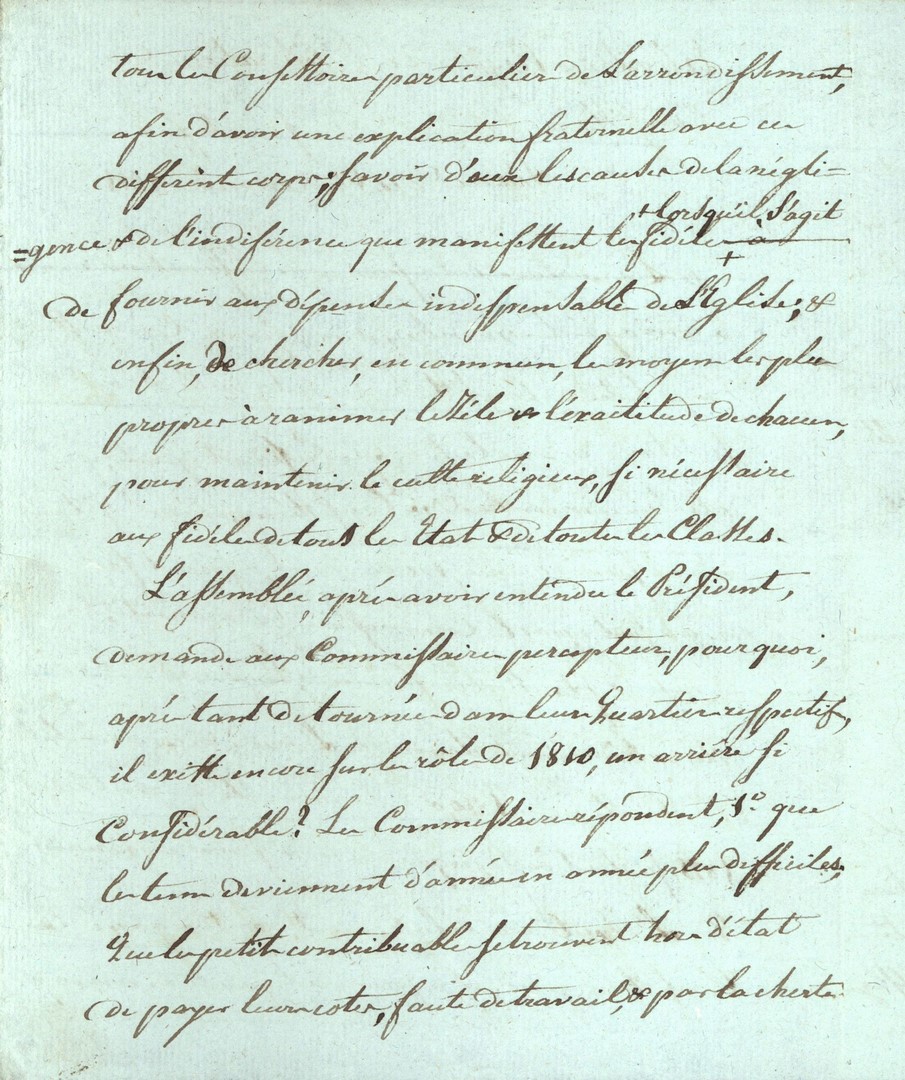 tous les Consistoires particuliers de L'arrondissement,
afin d'avoir une explication fraternelle avec ces
différents corps; savoir d'eux les causes de la négli=
+lorsqu'il s'agit
=gence & de l'indiférence que manifestent les fidéles à
+
de fournir aux dépenses indispensables de L'Eglise; &
enfin, de chercher, en commun, les moyens les plus
propres à ranimer le Zéle & l'éxactitude de chacun,
pour maintenir le culte religieux, si nécessaire
aux fidéles de tous les Etats & de toutes les Classes.
L'assemblée, aprés avoir entendu le Président,
demande aux Commissaires percepteurs, pourquoi,
aprés tant de tournées dans leurs Quartiers respectifs,
il existe encore sur les rôles de 1810, un arriéré si
Considérable? Les Commissaires répondent, 1.º que
les tems deviennent d'année en année plus difficiles,
Que les petits contribuables se trouvent hors d'état
de payer leurs cotes, faute de travail, & par la cherté